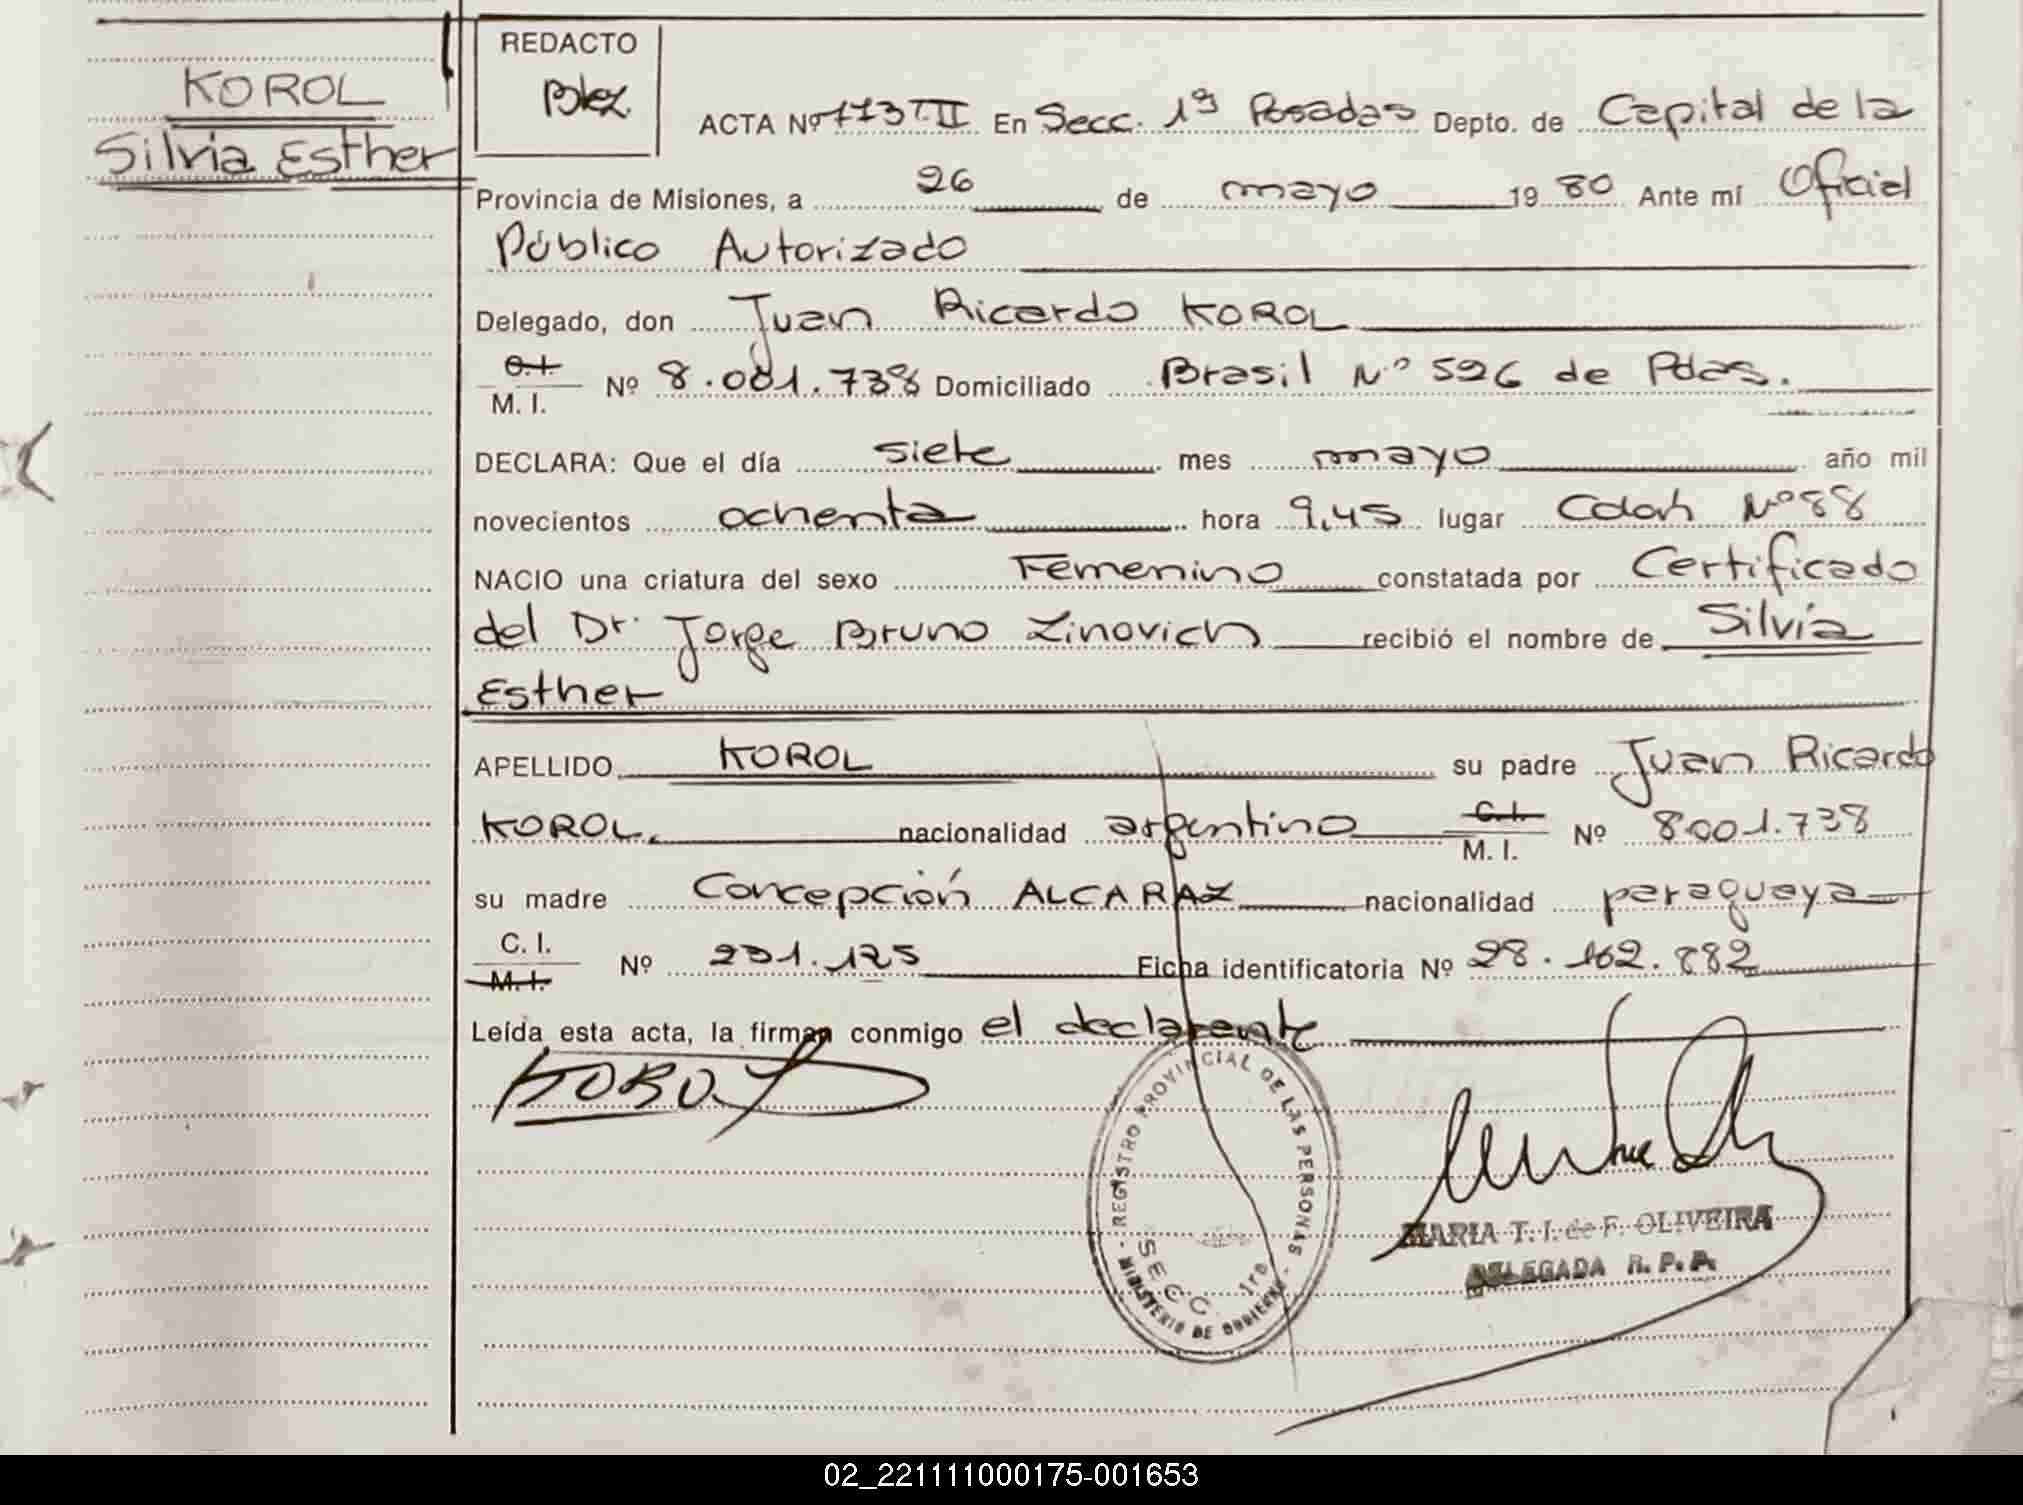 KOROL
Silvia Esther
REDACTO
ACTA Nº 1173 T.II En Secc. 1ª Posadas Depto. de Capital de la
Provincia de Misiones, a 26 de mayo 1980 Ante mí Oficial
Público Autorizado
Delegado, don Juan Ricardo KOROL
C.I.
M. I. Nº 8.001.738 Domiciliado Brasil Nº 526 de Pdas.
DECLARA: Que el día siete mes mayo año mil
novecientos ochenta hora 9,45 lugar Colón Nº 88
NACIO una criatura del sexo Femenino constatada por Certificado
del Dr. Jorge Bruno Zinovich recibió el nombre de Silvia
Esther
APELLIDO KOROL su padre Juan Ricardo
KOROL. nacionalidad argentino C.I.
M. I. Nº 8001.738
su madre Concepción ALCARAZ nacionalidad paraguaya
C. I.
M.I. Nº 231.125 Ficha identificatoria Nº 28.162.882
Leída esta acta, la firman conmigo el declarante
KOROL
REGISTRO PROVINCIAL DE LAS PERSONAS
SECC. 1ra
MINISTERIO DE GOBIERNO
MARIA T. I. de F. OLIVEIRA
DELEGADA R. P. P.
02_221111000175-001653